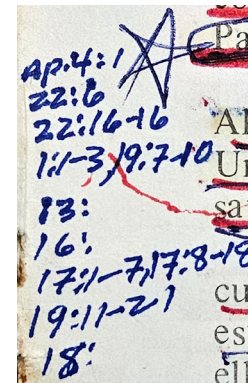 Ap:4:1
22:6
22:16-16
1:1-3,19:7-10
13:
16:
17:1-7,17:8-18
19:11-21
18:
Pa
sa
cu
es
ell